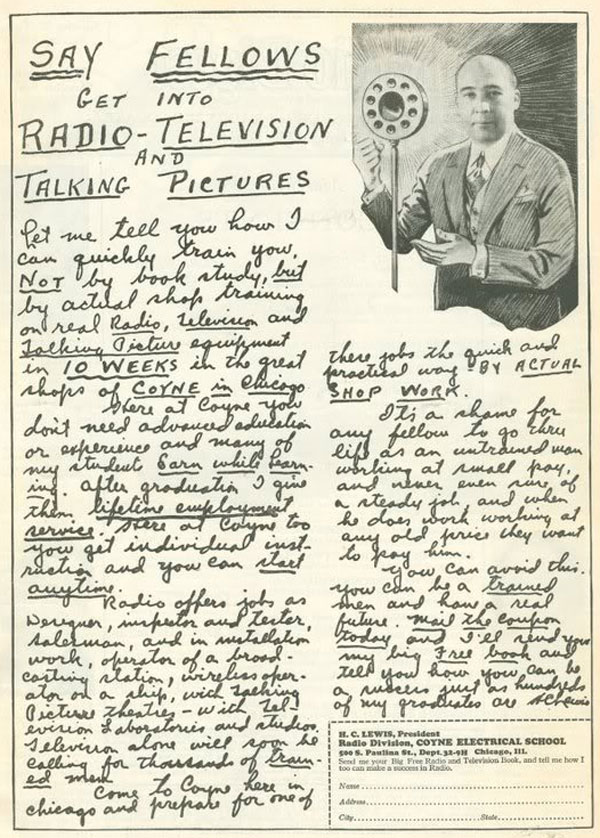 SAY FELLOWS
GET INTO
RADIO-TELEVISION
AND
TALKING PICTURES
Let me tell you how I
can quickly train you,
NOT by book study, but
by actual shop training
on real Radio, Television and
Talking Picture equipment
in 10 WEEKS in the great
shops of COYNE in Chicago
Here at Coyne you
don't need advanced education
or experience and many of
my student Earn while learn-
ing. After graduation I give
them lifetime employment
service. Here at Coyne too
you get individual inst-
ruction and you can start
anytime.
Radio offers jobs as
Designer, inspector and tester,
salesman, and in installation
work, operator of a broad-
casting station, wireless oper-
ator on a ship, with Talking
Picture theatres - with Tel-
evision Laboratories and studios.
Television alone will soon be
calling for thousands of train-
ed men.
Come to Coyne here in
chicago and prepare for one of
these jobs the quick and
practical way - BY ACTUAL
SHOP WORK.
It's a shame for
any fellow to go thru
life as an untrained man
working at small pay,
and never even sure of
a steady job, and when
he does work working at
any old price they want
to pay him.
You can avoid this.
you can be a trained
men and have a real
future. Mail the coupon
today and I'll send you
my big Free book and
tell you how you can be
a success just as hundreds
of my graduates are HCLewis
H. C. LEWIS, President
Radio Division, COYNE ELECTRICAL SCHOOL
500 S. Paulina St., Dept. Chicago, Ill.
Send me your Big Free Radio and Television Book, and tell me how I
too can make a success in Radio.
Name
Address
City State